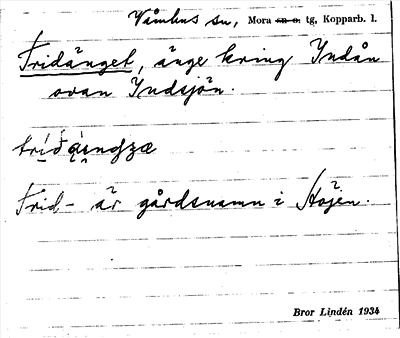 Våmhus sn, Mora sn o. tg, Kopparb. l.
Fridänget, änge kring Indån
ovan Indsjön.
Frid- är gårdsnamn i Höjen.
Bror Lindén 1934